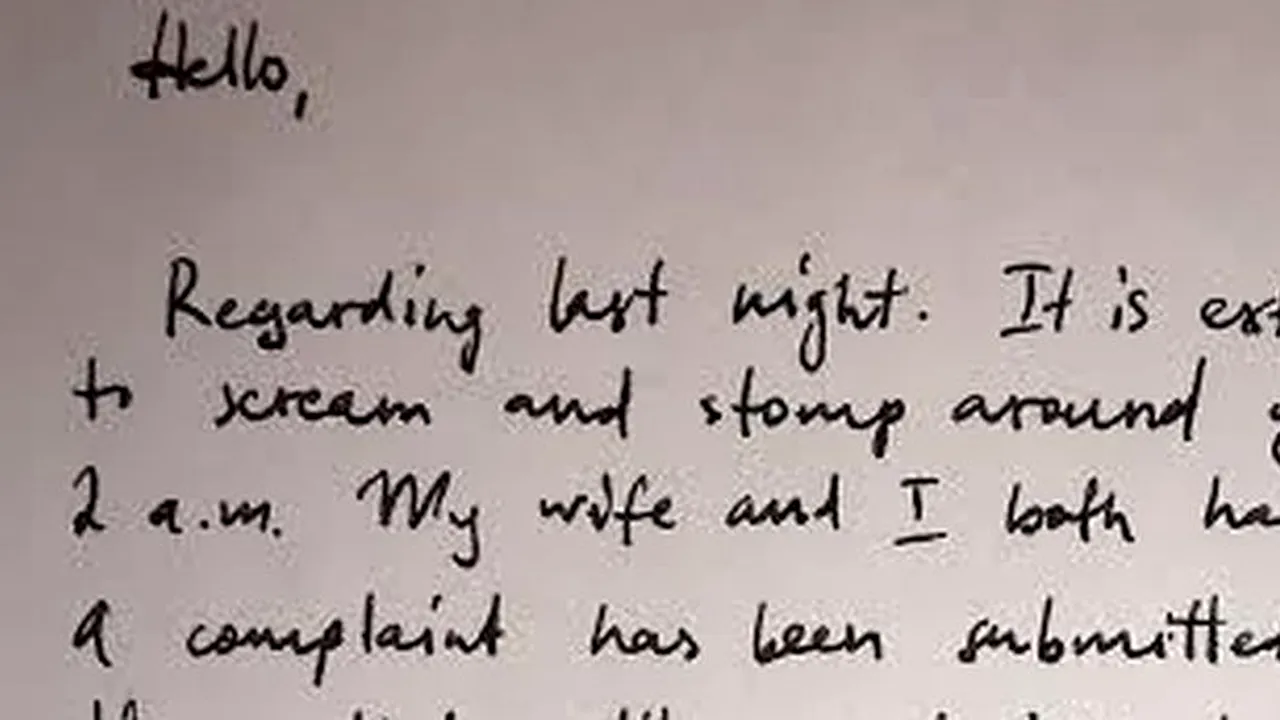 Hello,
Regarding last night. It is
to scream and stomp around
2 a.m. My wife and I both
A complaint has been submitted